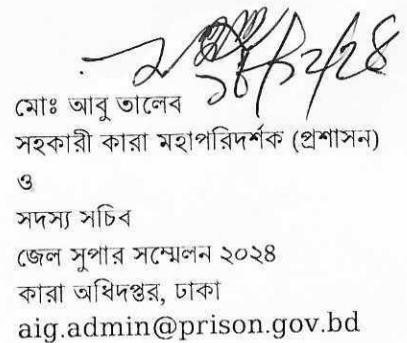 ১৮/১২/২৪
মোঃ আবু তালেব
সহকারী কারা মহাপরিদর্শক (প্রশাসন)
ও
সদস্য সচিব
জেল সুপার সম্মেলন ২০২৪
কারা অধিদপ্তর, ঢাকা
aig.admin@prison.gov.bd